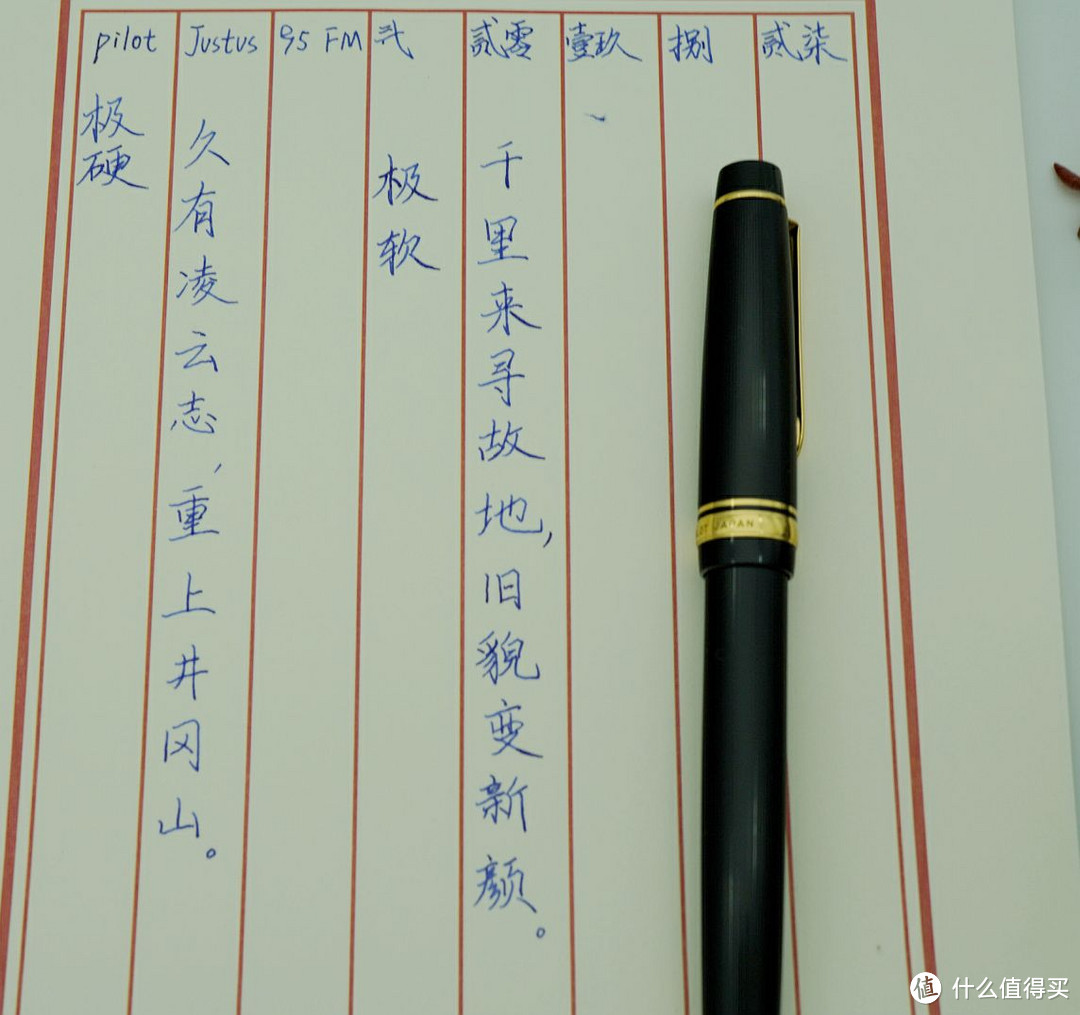 pilot Justus 95 FM 弍 贰零 壹玖 捌 贰柒
极硬
久有凌云志,重上井冈山。
极软
千里来寻故地,旧貌变新颜。
LOT JAPAN
值 什么值得买